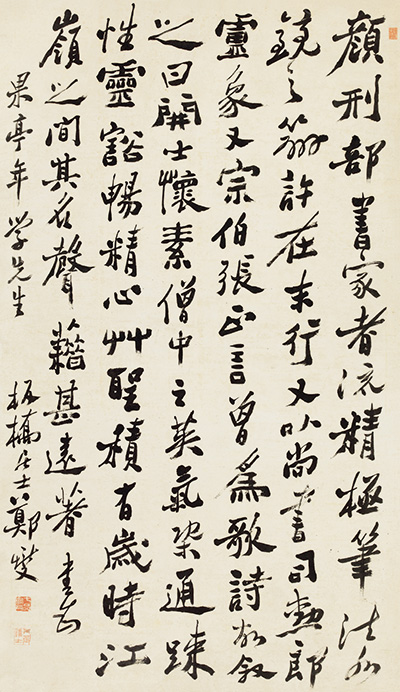 顏刑部書家者流精極筆法水
鏡之辨許在末行又以尚書司勳郎
盧象又宗伯張正言曾為歌詩故敘
之曰開士懷素僧中之英氣槩通疎
性靈豁暢精心艸聖積有歲時江
嶺之間其名聲藉甚遠著 書
果亭年学先生 板橋居士鄭燮